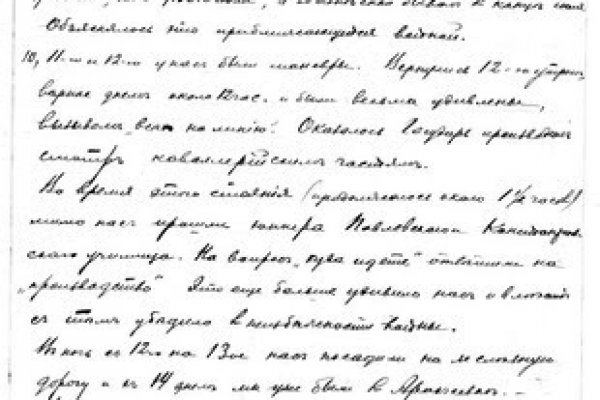 Объяснялось это приближающейся войной.
10, 11-го и 12-го у нас были маневры. Вернулись 12-го утром,
вернее днем около 12 час. и были весьма удивлены,
вызовом „всех на линию". Оказалось Государь производил
смотр кавалерийским частям.
Во время этого стояния (продолжалось около 1½ часов)
мимо нас прошли юнкера Павловского
училища. На вопрос „куда идете" отвечали на
„производство" Это еще больше удивило нас и
с тем убедило в неизбежности войны.
В ночь с 12го на 13ое нас посадили на железную
дорогу и с 14 днем мы уже были в